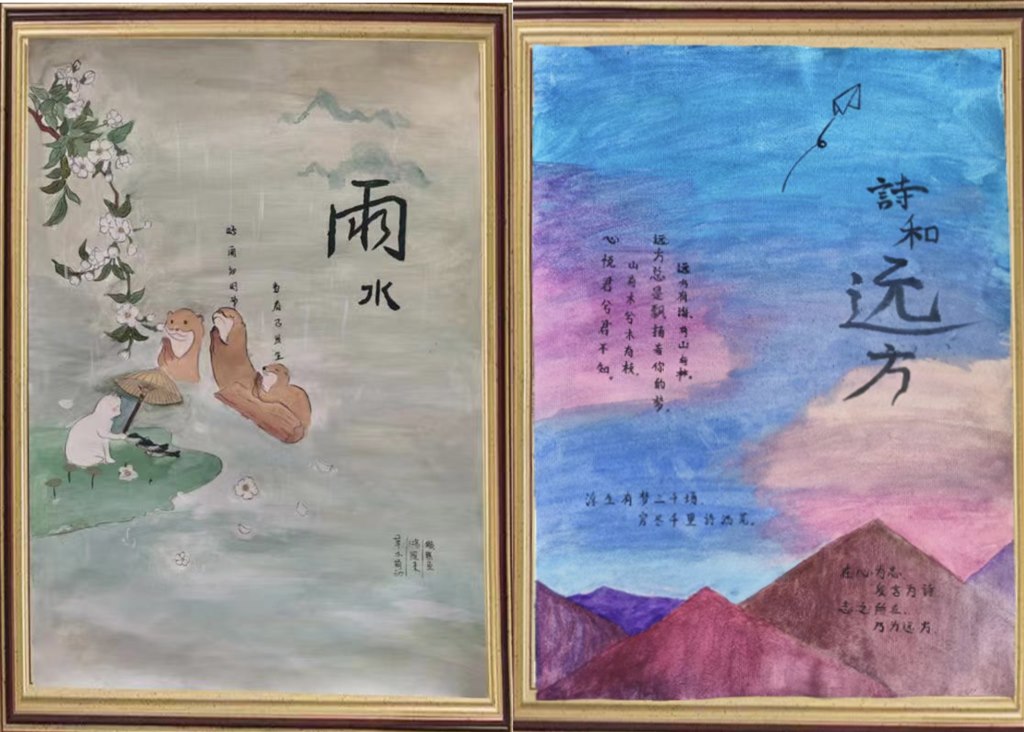 雨
水
好雨知时节
当春乃发生
獭祭鱼
鸿雁来
草木萌动
詩
和
远
方
远方总是飘着你的梦,
山有木兮木有枝,
心悦君兮君不知。
浮生有梦三千场,
穷尽千里诗酒荒。
在心为志,
发言为诗
志之所在,
乃为远方